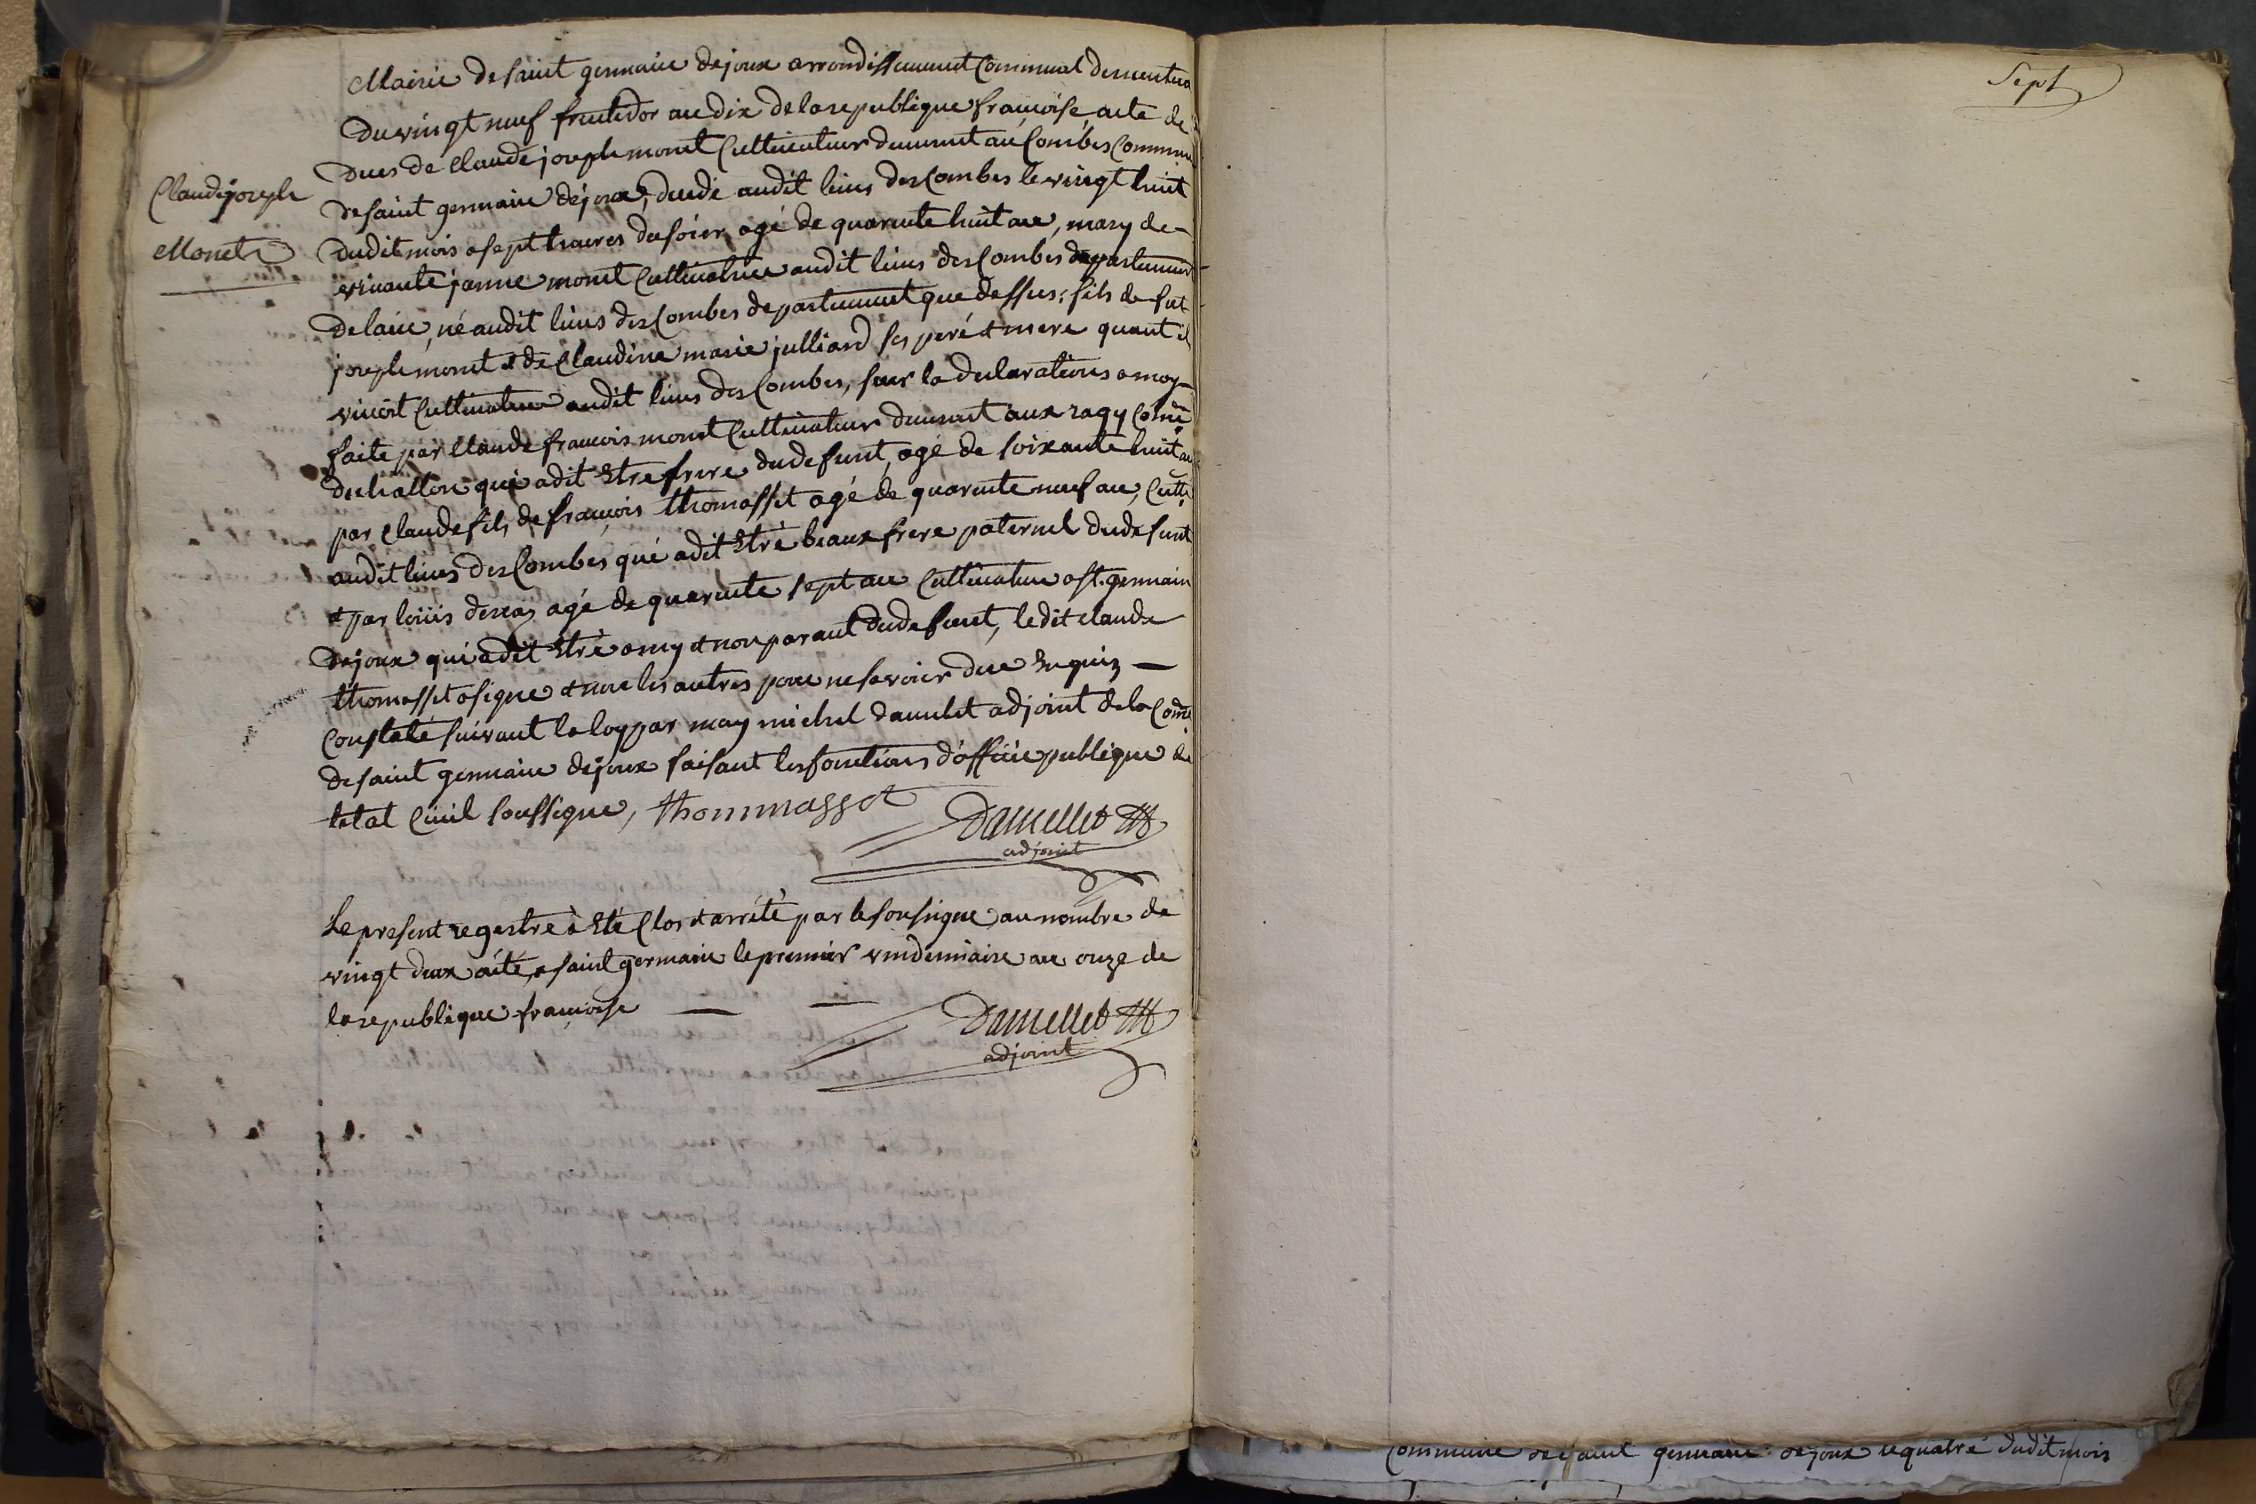 Claudejoseph
Monet
Mairie de saint germain dejoux arrondissement Communal de nentua
Du vingt neuf fructidor an dix de la republique françoise, acte de
Deces de Claude joseph monet Cultivateur demeurant au Combes Commune
de saint germain dejoux, decedé audit lieus des Combes le vingt huit
dudit mois a sept heures du soier, agé de quarente huit ans, mary de
vivante janne monet Cultivatrice audit lieus des Combes departement
de lain, né audit lieus des Combes departement que dessus, fils de fut
joseph monet & de Claudine marie julliard ses peré & mere quant il
vivoit Cultivateur audit lieus des Combes, sur la declarations a moy
faite par Claude francois monet Cultivateur demeurant aux Comne
qui a dit Etre frere du defunt, agé de soixante huit an
par Claude fils de françois thomasset agé de quarente neuf ans, Cultr
audit lieus des Combes qui a dit Etre beaux frere paternel du defunt
& par loüis agé de quarente sept ans Cultivateur a st. germain
dejoux qui a dit Etre amy & non parant du defunt, le dit claude
thomasset a signe & non les autres pour ne savoier de ce Enquis
Constaté suivant la loy par moy michel damelet adjoint de la Comne
de saint germain dejoux faisant les fonctions d'officié publique de
letat Civil soussigne, thommasset
Damellet M
adjoint
Le present regestre a Eté Clos & arrété par le soussigne, au nombre de
vingt deux acte, a saint germain le premier vindemiaire an onze de
la republique françoise
Damellet M
adjoint
Sept
Commune de saint germain dejoux le quatre dudit mois